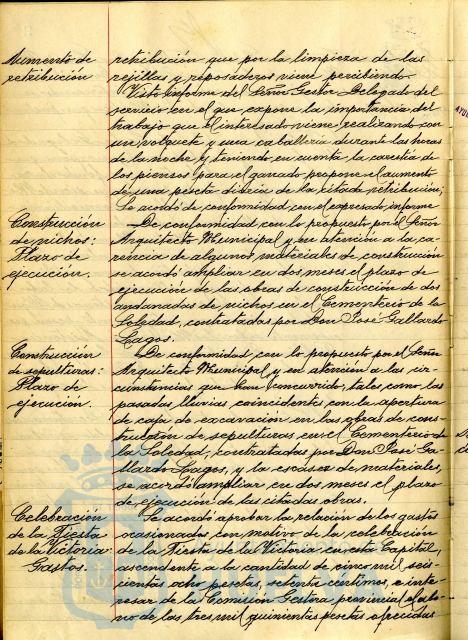 Aumento de
retribución
retribución que por la limpieza de las
rejillas y reposaderos viene percibiendo.
Visto informe del Señor Gestor Delegado del
servicio en el que expone la importancia del
trabajo que el interesado viene realizando con
un volquete y una caballeria durante las horas
de la noche y teniendo en cuenta la carestia de
los piensos para el ganado propone el aumento
de una peseta diaria de la citada retribución;
Se acordó de conformidad con el expresado informe
Construcción
de nichos:
Plazo de
ejecución.
De conformidad con lo propuesto por el Señor
Arquitecto Municipal y en atención a la ca-
rencia de algunos materiales de construcción
se acordó ampliar en dos meses el plazo de
ejecución de las obras de construcción de dos
andanadas de nichos en el Cementerio de la
Soledad, contratadas por Don José Gallardo
Lagos.
Construcción
de sepulturas:
Plazo de
ejecución.
De conformidad con lo propuesto por el Señor
Arquitecto Municipal y en atención a las cir-
cunstancias que han concurrido, tales como las
pasadas lluvias coincidentes con la apertura
de caja de excavación en las obras de cons-
trucción de sepulturas en el Cementerio de
la Soledad, contratadas por Don José Ga-
llardo Lagos, y la escasez de materiales,
se acordó ampliar en dos meses el plazo
de ejecución de las citadas obras.
Celebración
de la Fiesta
de la Victoria:
Gastos.
Se acordó aprobar la relación de los gastos
ocasionados con motivo de la celebración
de la Fiesta de la Victoria en esta Capital,
ascendente a la cantidad de cinco mil seis-
cientas ocho pesetas, setenta centimos, e inte-
resar de la Comisión Gestora provincial el abo-
no de las tres mil quinientas pesetas ofrecidas